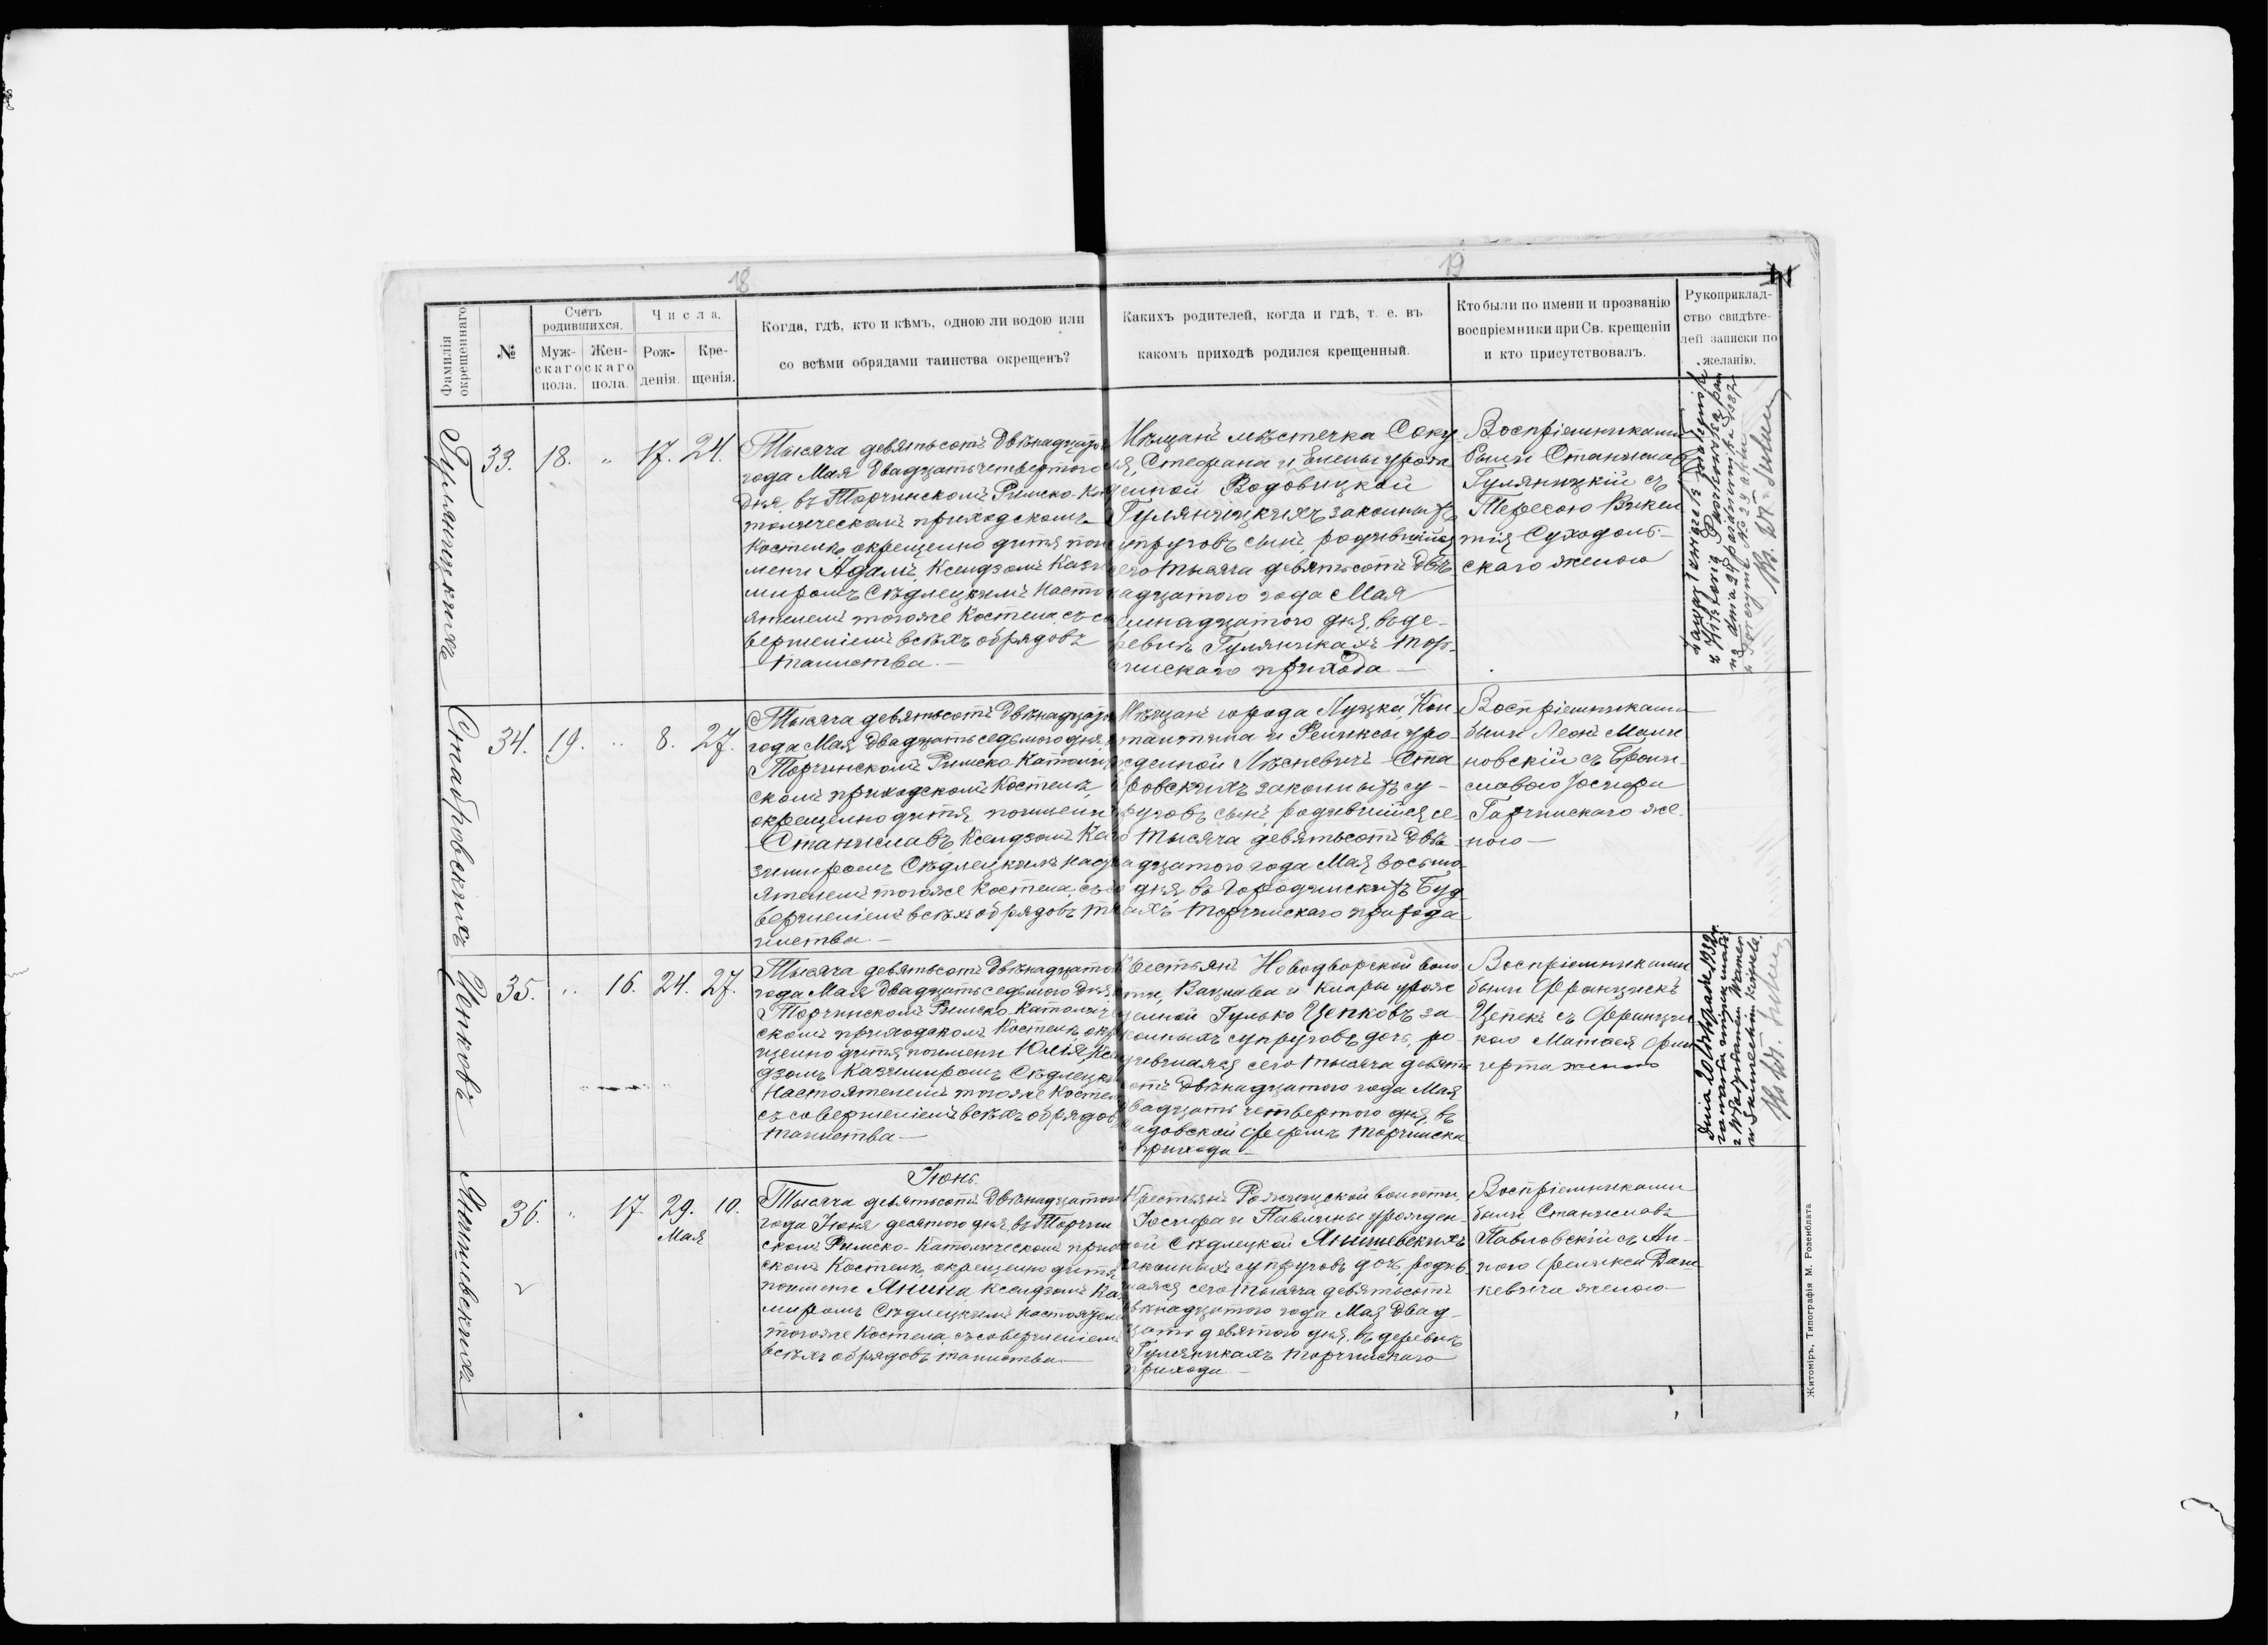 18
19
Фамилія
окрещеннаго
№
Счетъ
родившихся.
Муж-
скаго
пола.
Жен-
скаго
пола.
Числа.
Рож-
денія.
Кре-
щенія.
Когда, гдѣ, кто и кѣмъ, одною ли водою или
со всѣми обрядами таинства окрещенъ?
Какихъ родителей, когда и гдѣ, т. е. въ
какомъ приходѣ родился крещенный.
Кто были по имени и прозванію
воспріемники при Св. крещеніи
и кто присутствовалъ.
Рукоприклад-
ство свидѣте-
лей записки по
желанію.
Гуляницкихъ
33.
18.
„
17.
24.
Тысяча девятьсотъ двѣнадцатого
года Мая двадцать четвертого
дня, въ Торчинскомъ Римско-Ка
толическомъ приходскомъ
Костелѣ, окрещено дитя по и
мени Адамъ, Ксендзомъ Кази
миромъ Сѣдлецкимъ Насто
ятелемъ тогоже Костела, съ со
вершеніемъ всѣхъ обрядовъ
таинства.—
Мѣщанъ мѣстечка Соку
ля, Стефана и Елены урож
денной Водовицкой
Гуляницкихъ законныхъ
супруговъ сынъ, родившійся
сего тысяча девятьсотъ двѣ
надцатого года Мая
семнадцатого дня, въ де-
ревнѣ Гуляникахъ Тор-
чинскаго прихода—
Воспріемниками
были Станиславъ
Гуляницкій съ
Тересою Викен
тія Суходоль-
скаго женою
z Wiktorią Pawłowską
na dnia 24 października 1937 r.
Стабровскихъ
34.
19.
„
8.
27.
Тысяча девятьсотъ двѣнадцатого
года Мая двадцать седьмого дня, въ
Торчинскомъ Римско-Католиче
скомъ приходскомъ Костелѣ,
окрещено дитя по имени
Станиславъ, Ксендзомъ Ка
зимиромъ Сѣдлецкимъ Насто
ятелемъ тогоже Костела, съ со
вершеніемъ всѣхъ обрядовъ та
инства—
Мѣщанъ города Луцка, Кон
стантина и Феликсы уро-
жденной Лѣсневичъ Ста
бровскихъ законныхъ су-
пруговъ сынъ, родившійся се
го тысяча девятьсотъ двѣ
надцатого года Мая восьмо
го дня, въ Городчинскихъ Буд-
кахъ Торчинскаго прихода
Воспріемниками
были Леонъ Мали
новскій съ Брони-
славою Іосифа
Гарчинскаго же
ною—
Цепковъ
35.
„
16.
24.
27.
Тысяча девятьсотъ двѣнадцатого
года Мая двадцать седьмого дня, въ
Торчинскомъ Римско-Католиче
скомъ приходскомъ Костелѣ, окре
щено дитя по имени Юлія, Ксен
дзомъ Казимиромъ Сѣдлецкимъ
Настоятелемъ тогоже Костела
съ совершеніемъ всѣхъ обрядовъ
таинства—
Крестьянъ Новодворской воло
сти, Вацлава и Клары урож
денной Гулько Цепковъ за-
конныхъ супруговъ дочь, ро-
дившаяся сего тысяча девять
сотъ двѣнадцатого года Мая
двадцать четвертого дня, въ
Садовской фермѣ Торчинска
го прихода—
Воспріемниками
были Францискъ
Цепекъ съ Франциш
кою Матвея
женою
Dnia 20 listopada 1932 r.
zawarła związek małż.
Янишевскихъ
36.
„
17.
29.
Мая
10.
Іюнь.
Тысяча девятьсотъ двѣнадцатого
года Іюня десятого дня, въ Торчин
скомъ Римско-Католическомъ приход
скомъ Костелѣ, окрещено дитя
по имени Янина, Ксендзомъ Кази
миромъ Сѣдлецкимъ Настоятелемъ
тогоже Костела, съ совершеніемъ
всѣхъ обрядовъ таинства—
Крестьянъ Рожищской волости,
Іосифа и Павлины урожден-
ной Сѣдлецкой Янишевскихъ
законныхъ супруговъ дочь, родив-
шаяся сего тысяча девятьсотъ
двѣнадцатого года Мая двад-
цать девятого дня, въ деревнѣ
Гуляникахъ Торчинскаго
прихода—
Воспріемниками
были Станиславъ
Павловскій съ Ан-
ною Феликса Вань
кевича женою—
Житоміръ, Типографія М. Розенблата